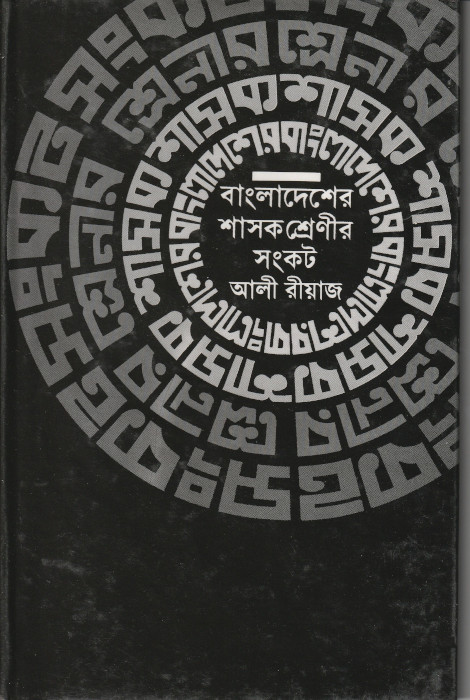 বাংলাদেশের
শাসকশ্রেণীর
সংকট
আলী রীয়াজ